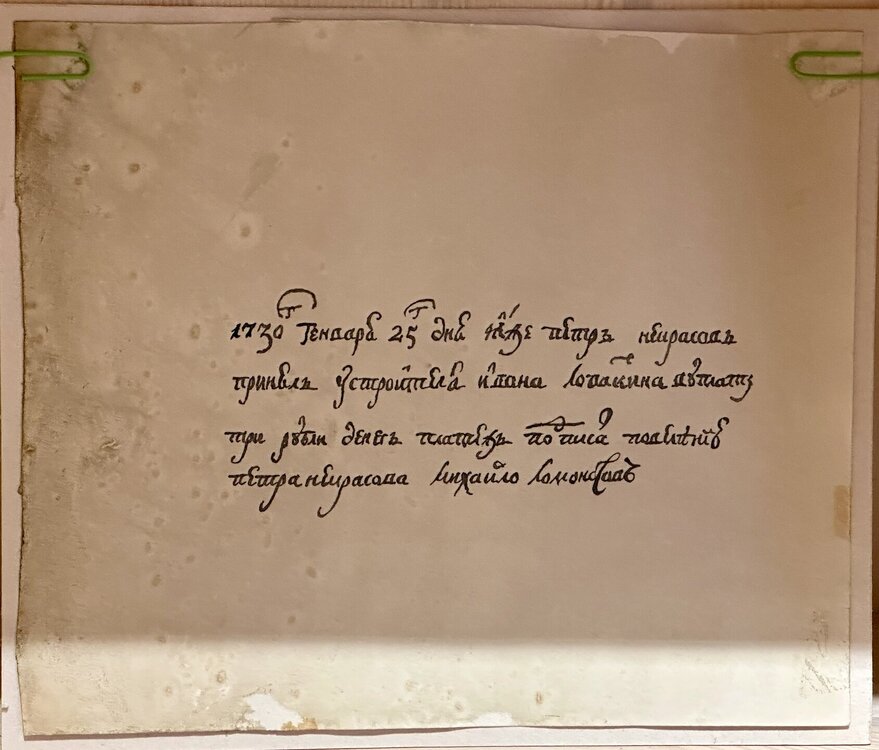 1730г генваря 25г дня я же петръ некрасовъ
принелъ ү строителя ивана лопаткина вүплату
три рүбли денегъ платежь потписал повелѣнию
петра некрасова михайло ломоносовъ